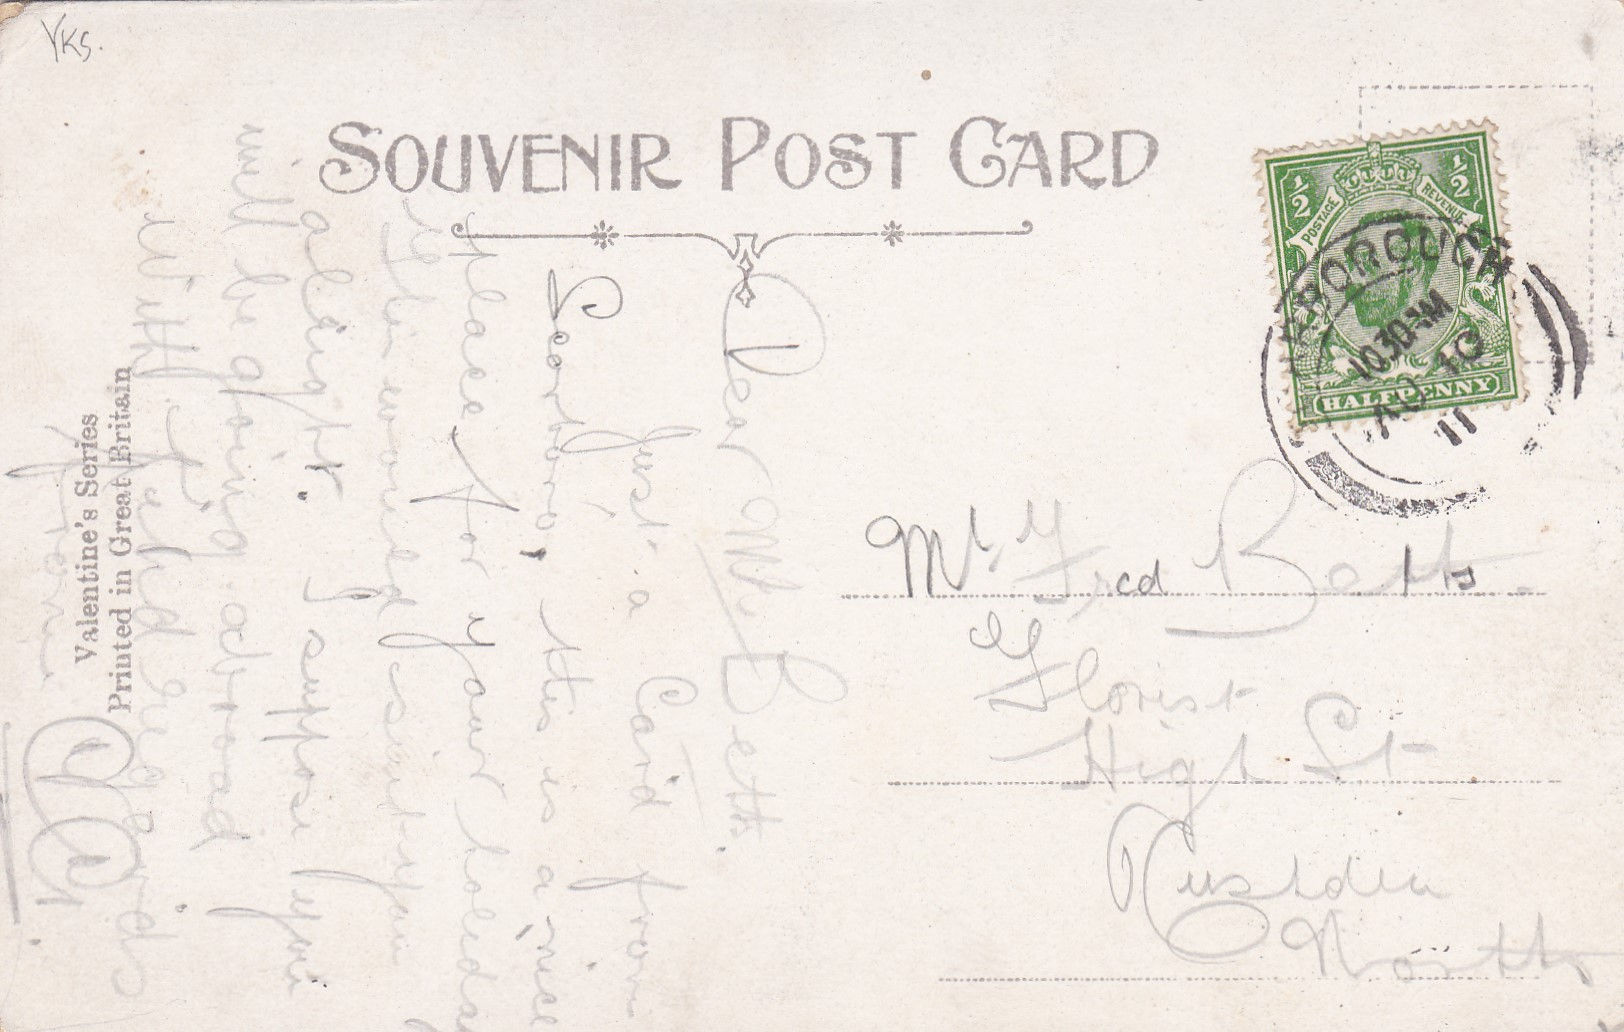 YKS.
SOUVENIR POST CARD
½ ½
POSTAGE REVENUE
HALFPENNY
BOROUGH
10.30 AM
AU 10
11
Valentine's Series
Printed in Great Britain
Dear Mr Betts.
Just a Card from
Scarboro, this is a nice
place for your holeday
the would suit you
alright. I suppose you
will be going abroad
with
from
Mr Fred Betts.
Florist
High St
Rushden
Northts